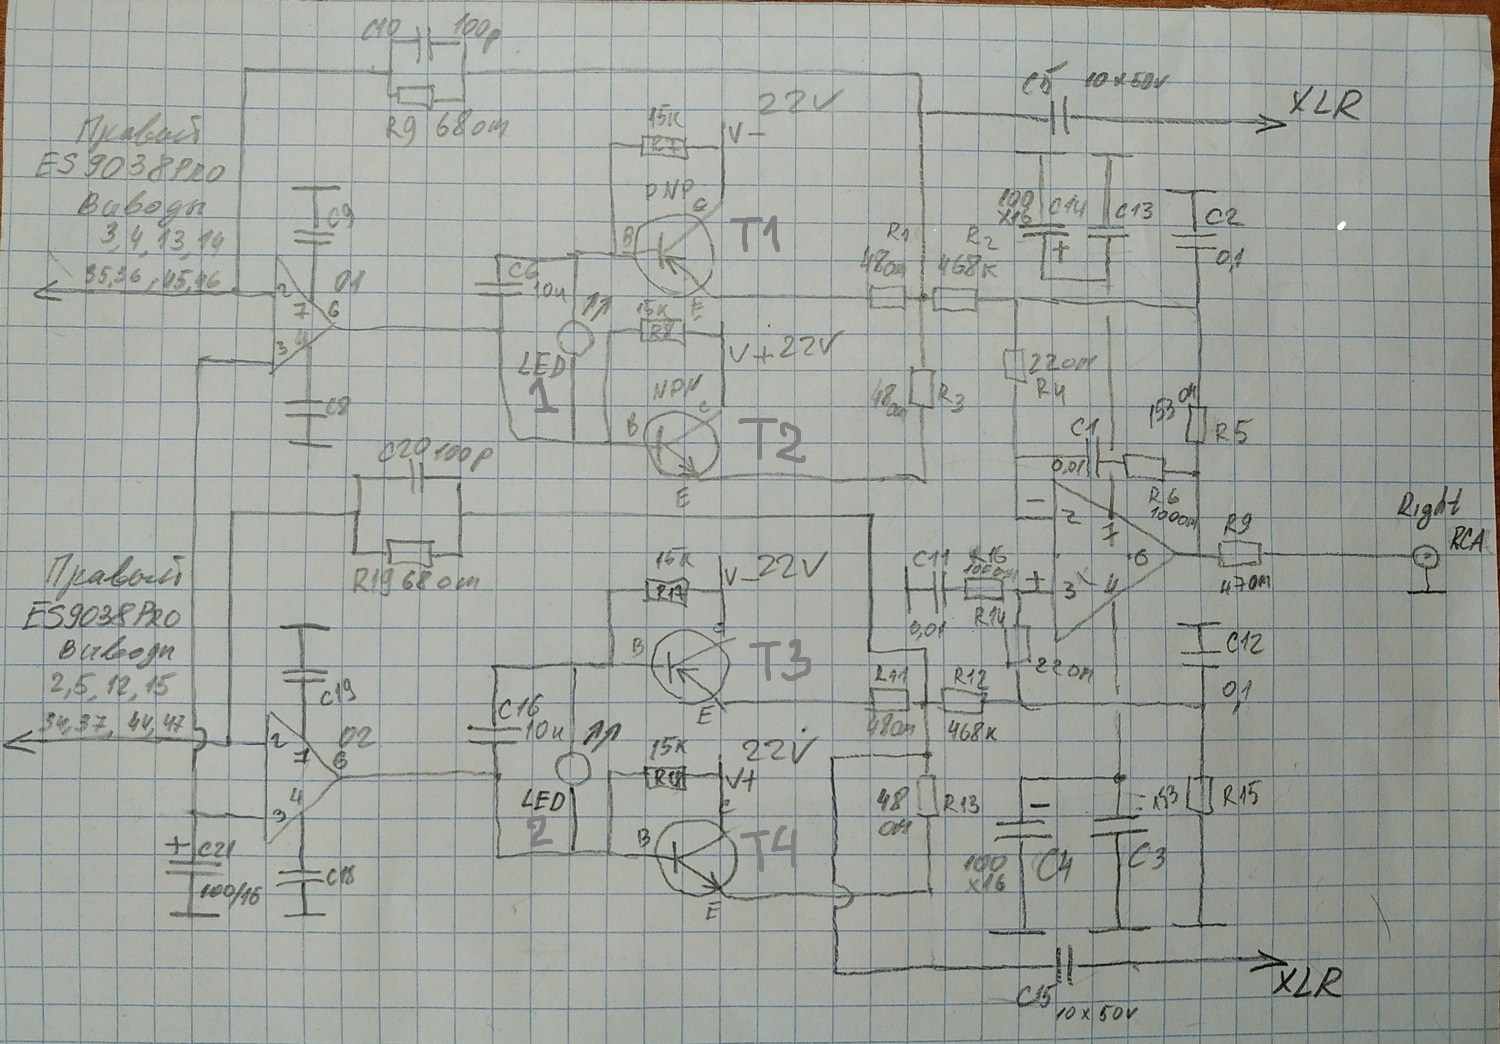 C10 100p
R9 68om
Правый
ES9038Pro
Виводы
3,4,13,14
35,36,45,46
C9
2
7
6
01
3
4
C8
C6
10u
LED
1
15K
R7
V-
22V
PNP
C
B
E
T1
15K
R8
V+22V
NPN
C
B
E
T2
C5 10x50V
XLR
100
x16
C14
+
C13
C2
0,1
R1
48om
R2
468K
48
om
R3
220m
R4
153 om
R5
C1
0,01
R6
100om
-
2
7
6
+
3
4
R9
47om
Right
RCA
C20 100p
R19 68om
Правый
ES9038Pro
Виводы
2,5,12,15
34,37, 44,47
C19
2
7
6
02
3
4
C18
+
C21
100/16
C16
10u
LED
2
15K
R17
V-22V
C
B
E
T3
15K
R18
22V
V+
C
B
E
T4
C11
0,01
R16
100om
R14
220m
R11
48om
R12
468K
48
om
R13
C12
0,1
153
R15
-
100
x16
C4
C3
C15
10x50V
XLR